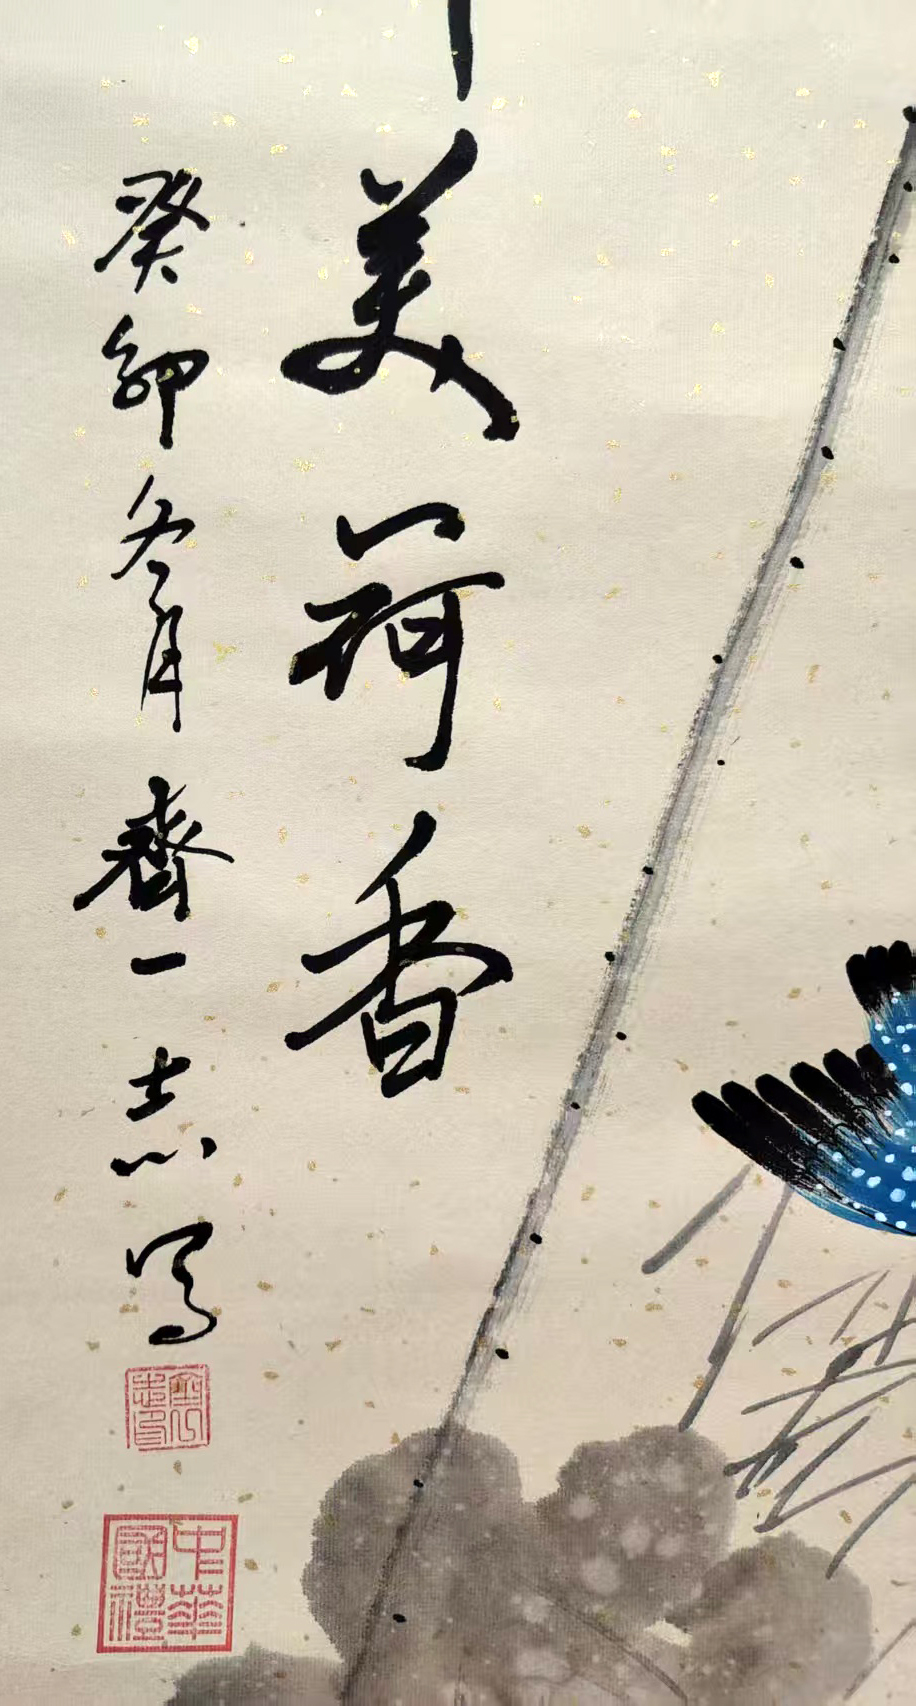 美荷香
癸卯冬月齊一志寫
中華
國禮